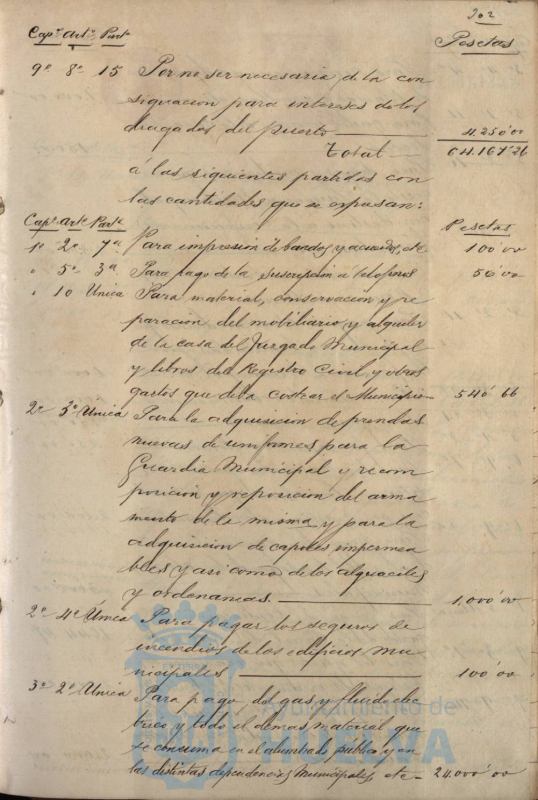 202
Capº. Artº. Partª Pesetas
9º 8º 15 Por no ser necesaria de la con
signacion para intereses de los
dragados del puerto 4.250'00
Total 64.167'26
á las siguientes partidas con
las cantidades que se expresan:
Capº. Artº. Partª Pesetas
1º 2º 7ª Para impresión de bandos y acuerdos, etc 100'00
" 5º 3ª Para pago de la suscripción a telefonos 56'00
" 10 Unica Para material, conservacion y re
paracion del mobiliario y alquiler
de la casa del Juzgado Municipal
y libros del Registro Civil, y otros
gastos que deba costear el Municipio 540'66
2º 3º Unica Para la adquisicion de prendas
nuevas de uniformes para la
Guardia Municipal y recom
posicion y reposicion del arma
mento de la misma y para la
adquisicion de capotes impermea
bles y asi como de los alguaciles
y ordenanzas. 1.000'00
2º 4º Unica Para pagar los seguros de
incendios de los edificios mu
nicipales 100'00
3º 2º Unica Para pago del gas y fluido elec
trico y todo el demas material que
se consuma en el alumbrado público y en
las distintas dependencias Municipales, etc 24.000'00
Ayuntamiento de
HUELVA